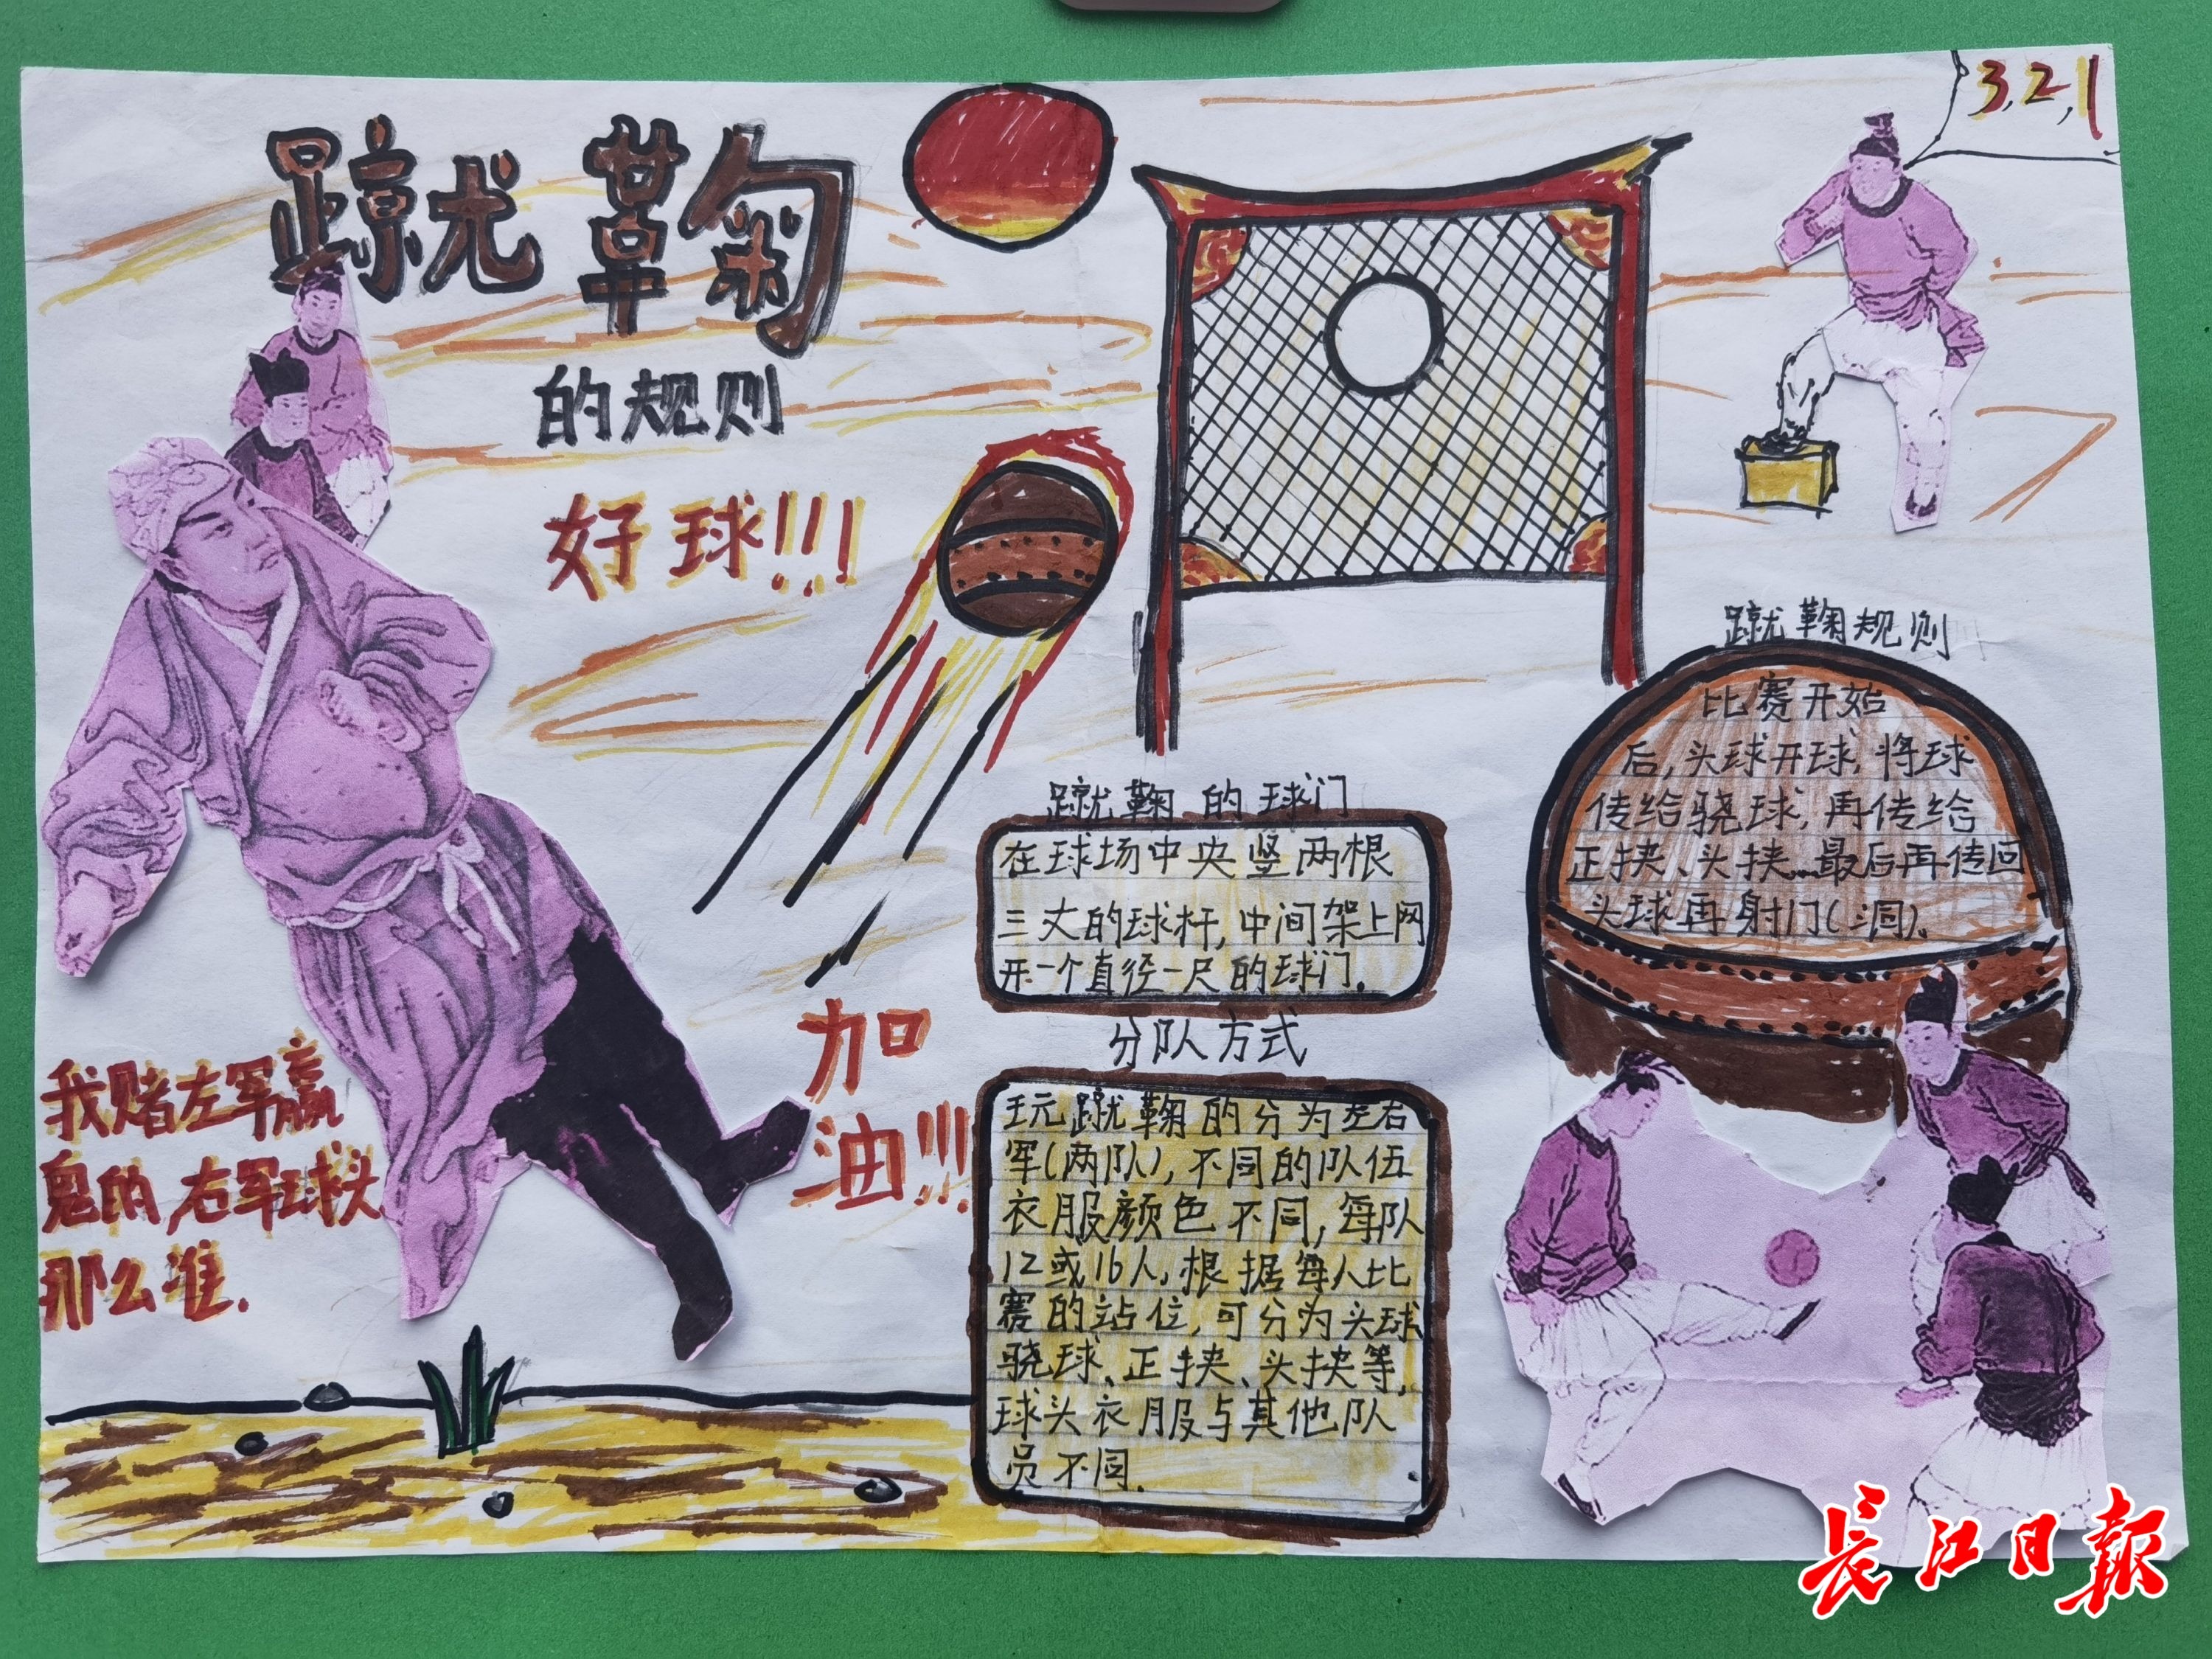 3,2,1
蹴鞠
的规则
好球!!!
我赌左军赢
鬼的,右军球头
那么准.
加
油!!!
蹴鞠的球门
在球场中央竖两根
三丈的球杆,中间架上网
开一个直径一尺的球门.
分队方式
玩蹴鞠的分为左右
军(两队),不同的队伍
衣服颜色不同,每队
12或16人,根据每人比
赛的站位,可分为头球
骁球、正挟、头挟等,
球头衣服与其他队
员不同.
蹴鞠规则
比赛开始
后,头球开球,将球
传给骁球,再传给
正挟、头挟...最后再传回
头球再射门(洞).
长江日报